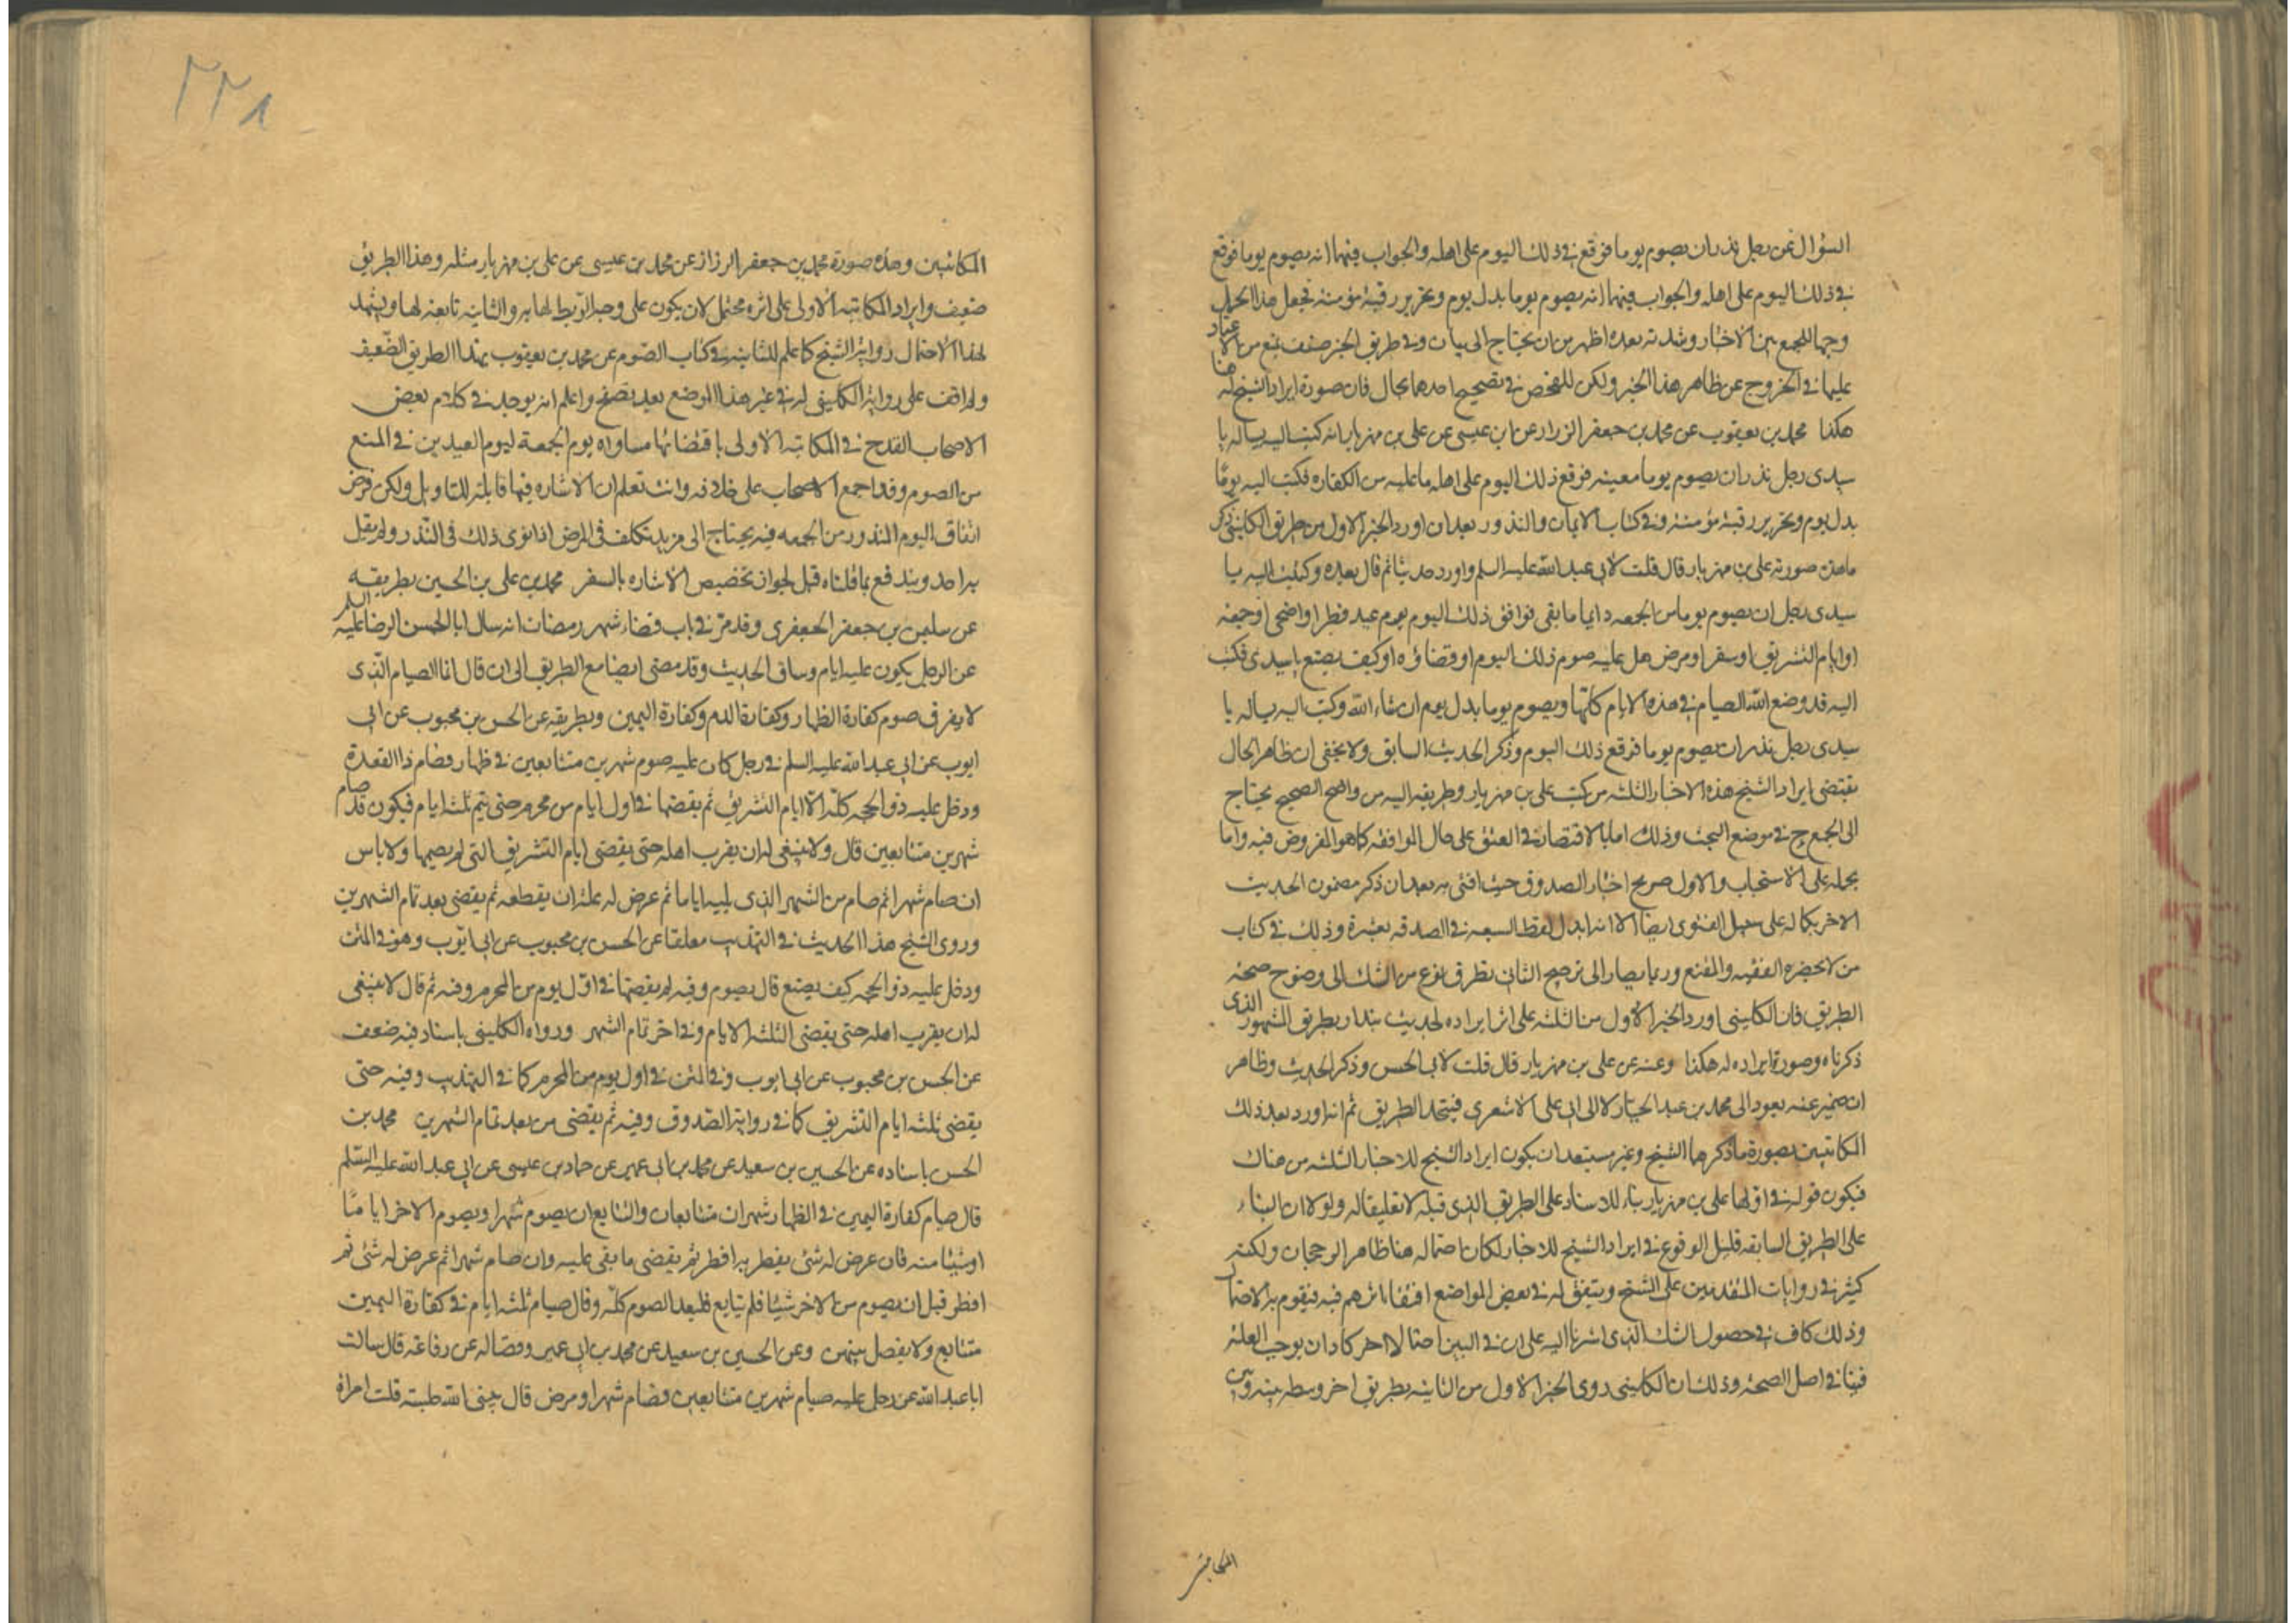 السؤال عن رجل نذر ان يصوم يوما فوقع في ذلك اليوم على اهله والجواب فيهما انه يصوم يوما فوقع
في ذلك اليوم على اهله والجواب فيهما انه يصوم يوما بدل يوم وتحرير رقبة مؤمنة فجعل هذا الحمل
وجها للجمع بين الاخبار وشدة بعده اظهر من ان يحتاج الى بيان وفي طريق الخبر ضعف يمنع من الاعتماد
عليها في الخروج عن ظاهر هذا الخبر ولكن للفحص في تصحيح احدهما مجال فان صورة ايراد الشيخ له هنا
هكذا محمد بن يعقوب عن محمد بن جعفر الرزاز عن ابن عيسى عن على بن مهزيار انه كتب اليه يساله يا
سيدى رجل نذر ان يصوم يوما معينه فوقع ذلك اليوم على اهله ما عليه من الكفاره فكتب اليه يوما
بدل يوم وتحرير رقبة مؤمنة وفي كتاب الايمان والنذور بعد ان اورد الخبر الاول من طريق الكليني ذكر
ما هذه صورته على بن مهزيار قال قلت لابى عبد الله عليه السلم واورد حديثا ثم قال بعده وكتبت اليه يا
سيدى رجل ان يصوم يوما من الجمعه دايما ما بقى فوافق ذلك اليوم يوم عيد فطر او اضحى او جمعة
او ايام التشريق او سفر او مرض هل عليه صوم ذلك اليوم او قضاؤه او كيف يصنع يا سيدى فكتب
اليه قد وضع الله الصيام في هذه الايام كلها ويصوم يوما بدل يوم ان شاء الله وكتب اليه يساله يا
سيدى رجل نذر ان يصوم يوما فوقع ذلك اليوم وذكر الحديث السابق ولا يخفى ان ظاهر الحال
يقتضى ايراد الشيخ هذه الاخبار الثلثه من كتب على بن مهزيار وطريقه اليه من واضح الصحيح يحتاج
الى الجمع ح في موضع البحث وذلك اما بالاقتصار في العتق على حال الموافقه كما هو المفروض فيه واما
بحمله على الاستحباب والاول صريح اختيار الصدوق حيث افتى به بعد ان ذكر مضمون الحديث
الاخر بكماله على سبيل الفتوى ايضا الا انه ابدل لفظ السبعه في الصدقه بعشرة وذلك في كتاب
من لا يحضره الفقيه والمقنع وربما يصار الى ترجيح الثانى بتطرق نوع من الشك الى وضوح صحة
الطريق فان الكليني اورد الخبر الاول من الثلثه على اثر ايراده لحديث بندار بطريق المشهور الذى
ذكرناه وصورة ايراده له هكذا وعنه عن على بن مهزيار قال قلت لابى الحسن وذكر الحديث وظاهر
ان ضمير عنه يعود الى محمد بن عبد الجبار لا الى ابى على الاشعرى فيتحد الطريق ثم انه اورد بعد ذلك
المكاتبتين بصورة ما ذكرهما الشيخ وغير مستبعد ان يكون ايراد الشيخ للاخبار الثلثه من هناك
فيكون قوله في اولها على بن مهزيار بناء للاسناد على الطريق الذى قبله لا تعليقا له ولولا ان البناء
على الطريق السابقه قليل الوقوع في ايراد الشيخ للاخبار لكان احتماله هنا ظاهر الرجحان ولكنه
كثير في روايات المتقدمين على الشيخ ويتفق له في بعض المواضع اقتفاء اثرهم فيه فيقوم به الاحتمال
وذلك كاف في حصول الشك الذى اشرنا اليه على ان في البين احتمالا اخر كاد ان يوجب العلة
فيها في اصل الصحة وذلك ان الكليني روى الخبر الاول من الثانيه بطريق اخر وسطه بينه وبين
المكاتبتين
المكاتبتين وهذه صورة محمد بن جعفر الرزاز عن محمد بن عيسى عن على بن مهزيار مثله وهذا الطريق
ضعيف وايراد المكاتبة الاولى على اثره محتمل لان يكون على وجه الربط لها به والثانيه تابعة لها ويشهد
لهذا الاحتمال رواية الشيخ كما علم للثانيه في كتاب الصوم عن محمد بن يعقوب بهذا الطريق الضعيف
ولم اقف على رواية الكليني له في غير هذا الموضع بعد تصفح واعلم انه يوجد في كلام بعض
الاصحاب القدح في المكاتبه الاولى باقتضائها مساواه يوم الجمعة ليوم العيدين في المنع
من الصوم وقد اجمع الاصحاب على خلافه وانت تعلم ان الاشاره فيها قابلة للتاويل ولكن فرض
اتفاق اليوم المنذور من الجمعه فيه يحتاج الى مزيد تكلف في المرض اذا نوى ذلك في النذر ولم يقل
به احد ويندفع بما قلناه قبل لجواز تخصيص الاشاره بالسفر محمد بن على بن الحسين بطريقه
عن سليمن بن جعفر الجعفرى وقد مر في باب قضاء شهر رمضان انه سال ابا الحسن الرضا عليه السلم
عن الرجل يكون عليه ايام وساق الحديث وقد مضى ايضا مع الطريق الى ان قال انما الصيام الذى
لا يفرق صوم كفارة الظهار وكفارة الدم وكفارة اليمين وبطريقه عن الحسن بن محبوب عن ابى
ايوب عن ابى عبد الله عليه السلم في رجل كان عليه صوم شهرين متتابعين في ظهار فصام ذا القعدة
ودخل عليه ذو الحجه كله الا ايام التشريق ثم يقضيها في اول ايام من محرم حتى يتم ثلثه ايام فيكون قد صام
شهرين متتابعين قال ولا ينبغى له ان يقرب اهله حتى يقضى ايام التشريق التى لم يصمها ولا باس
ان صام شهرا ثم صام من الشهر الذى يليه اياما ثم عرض له علة ان يقطعه ثم يقضى بعد تمام الشهرين
وروى الشيخ هذا الحديث في التهذيب معلقا عن الحسن بن محبوب عن ابى ايوب وهو في المتن
ودخل عليه ذو الحجه كيف يصنع قال يصوم وفيه لم يقضيها في اول يوم من المحرم وفيه ثم قال لا ينبغى
له ان يقرب اهله حتى يقضى الثلثه الايام وفي اخر تمام الشهر ورواه الكليني باسناد فيه ضعف
عن الحسن بن محبوب عن ابى ايوب وفي المتن في اول يوم من المحرم كما في التهذيب وفيه حتى
يقضى ثلثه ايام التشريق كما في رواية الصدوق وفيه ثم يقضى من بعد تمام الشهرين محمد بن
الحسن باسناده عن الحسين بن سعيد عن محمد بن ابى عمير عن حماد بن عيسى عن ابى عبد الله عليه السلم
قال صيام كفارة اليمين في الظهار شهران متتابعان والتتابع ان يصوم شهرا ويصوم الاخر اياما
او شيئا منه فان عرض له شئ يفطر به افطر ثم يقضى ما بقى عليه وان صام شهرا ثم عرض له شئ ثم
افطر قبل ان يصوم من الاخر شيئا فلم يتابع فليعد الصوم كله وقال صيام ثلثه ايام في كفارة اليمين
متتابع ولا يفصل بينهن وعن الحسين بن سعيد عن محمد بن ابى عمير وفضاله عن رفاعة قال سالت
ابا عبد الله عن رجل عليه صيام شهرين متتابعين فصام شهرا ومرض قال يبنى الله حبسه قلت امراة